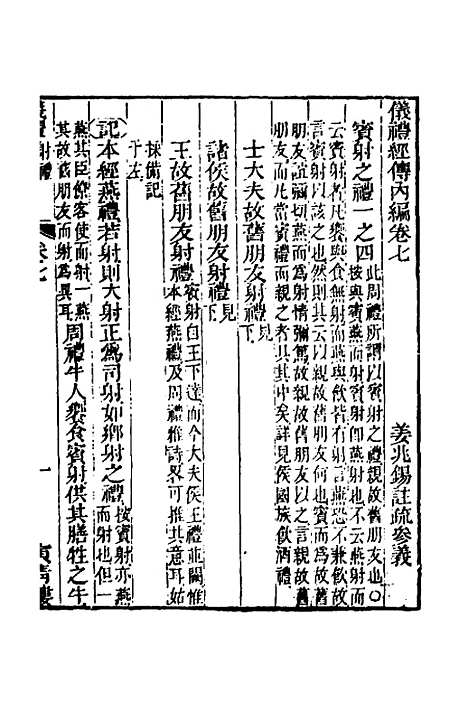 儀禮經傳內編卷七
姜兆錫註疏參義
賓射之禮一之四
此周禮所謂以賓射之禮親故舊朋友也〇
按與賓燕而射賓射卽燕射也不云燕射而
云賓射者凡饗與食無射而燕與飲皆有射言燕恐不兼飲故
言賓射以該之也然則其云以親故舊朋友何也賓而為故舊
朋友而此當賓禮而親之者具其中矣詳見侯國族飲酒禮
士大夫故舊朋友射禮見下
諸侯故舊朋友射禮見下
王故舊朋友射禮
賓射自王下達而今大夫侯王禮並闕惟
本經燕禮及周禮雅詩畧可推其意耳姑
採備記
于左
記本經燕禮若射則大射正為司射如鄉射之禮
按賓射亦燕
而射也但一
燕其臣僚客使而射一燕
其故舊朋友而射為異耳
周禮牛人饗食賓射供其膳牲之牛
卷七
一
寅清樓